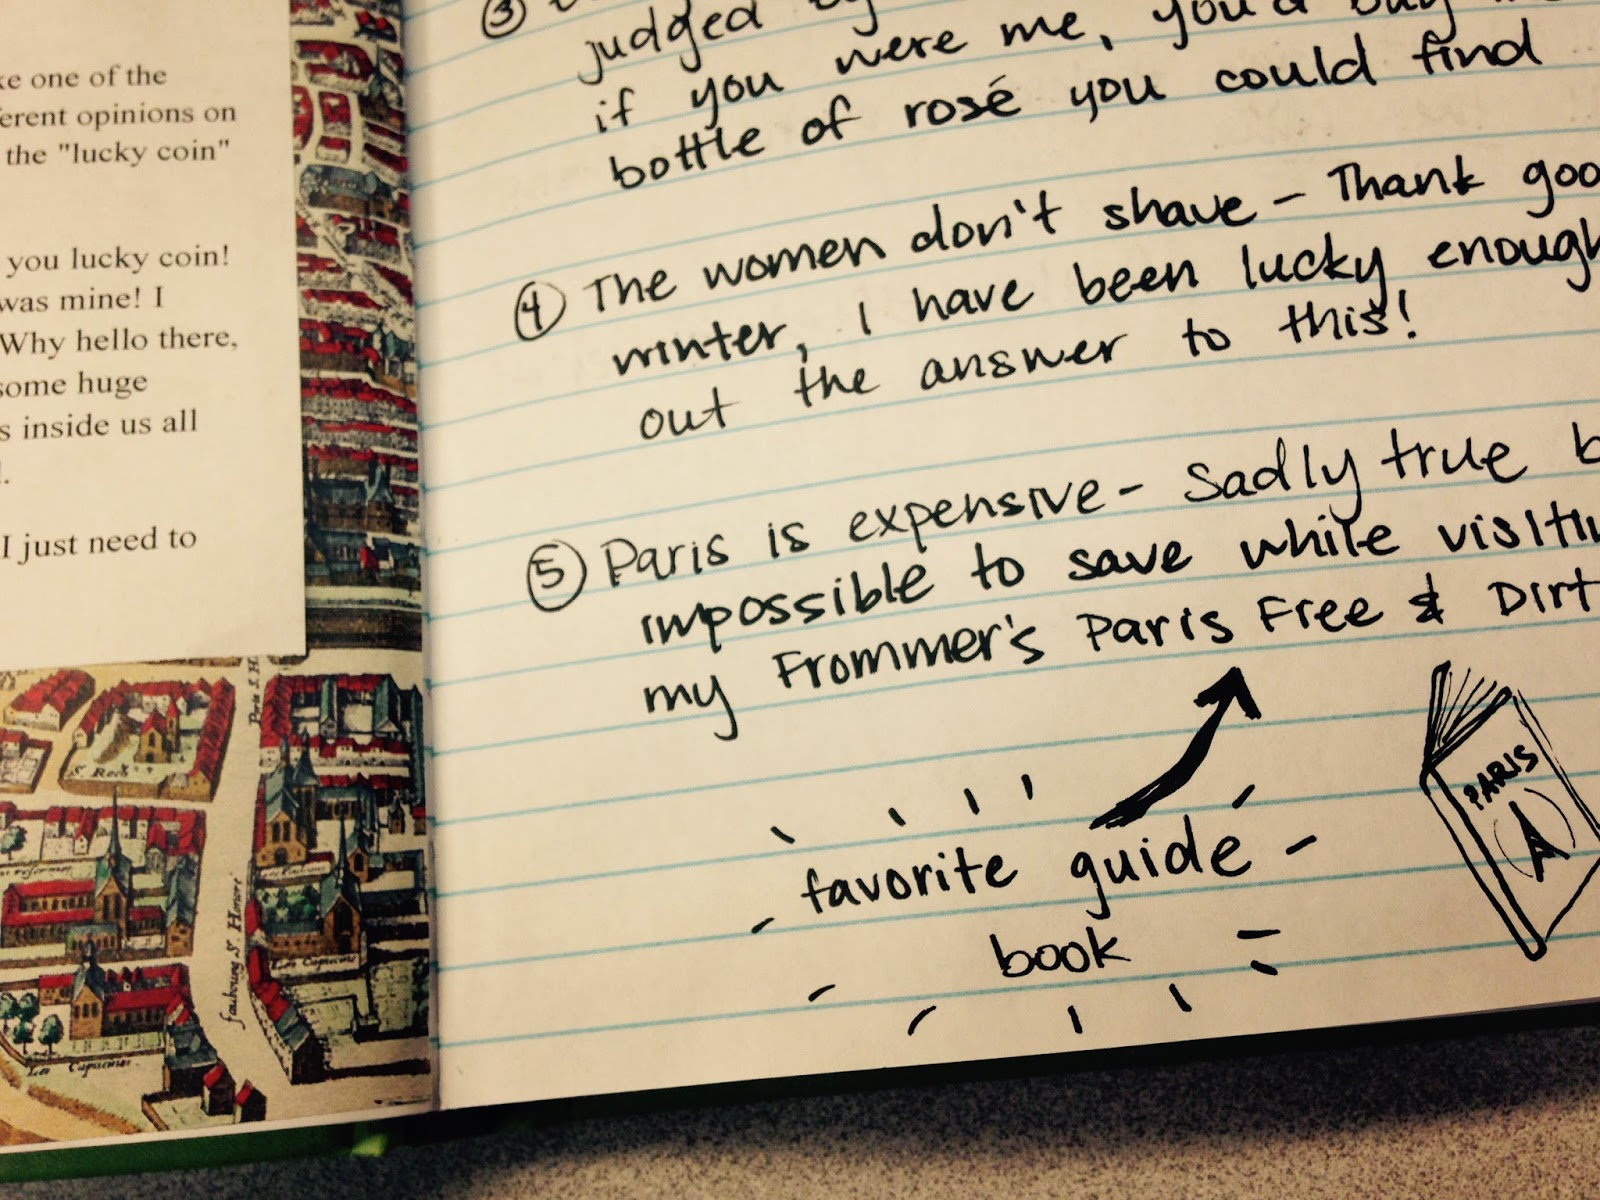 ke one of the
erent opinions on
the "lucky coin"
you lucky coin!
was mine! I
Why hello there,
some huge
s inside us all
I just need to
S. Roch
Faubourg S. Honoré
Les Capucins
③
judged
if you were me, you'd buy
bottle of rosé you could find
④ The women don't shave - Thank goo
winter, I have been lucky enough
out the answer to this!
⑤ Paris is expensive - Sadly true b
impossible to save while visitin
my Frommer's Paris Free & Dirt
favorite guide -
book
PARIS